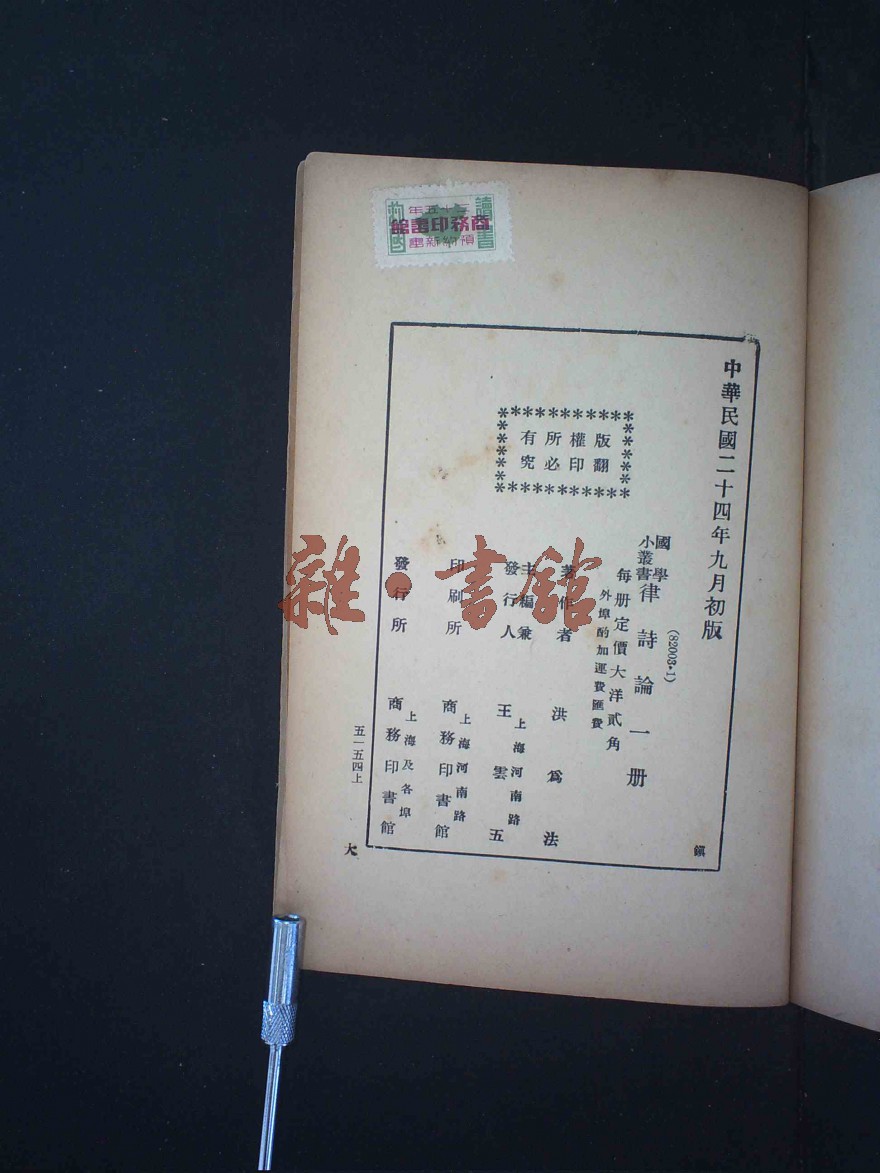 中華民國二十四年九月初版
(82003·1)
國學小叢書 律詩論一册
每册定價大洋貳角
外埠酌加運費匯費
版權所有
翻印必究
著作者 洪爲法
主編兼發行人 王雲五
上海河南路
印刷所 商務印書館
上海河南路
發行所 商務印書館
上海及各埠
五一五四上
鎮
大
讀書
三十五年
商務印書館
雜·書館